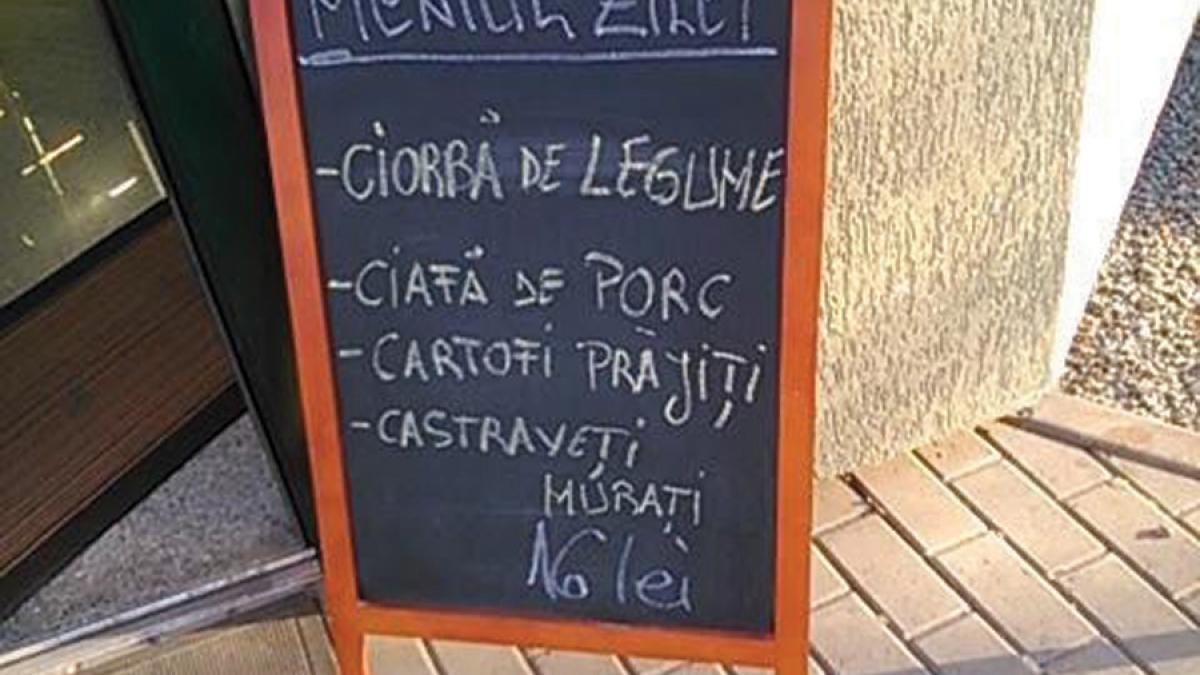 MENIUL ZILEI
-CIORBĂ DE LEGUME
-CIAFĂ DE PORC
-CARTOFI PRĂJIȚI
-CASTRAVEȚI
MURAȚI
16 lei